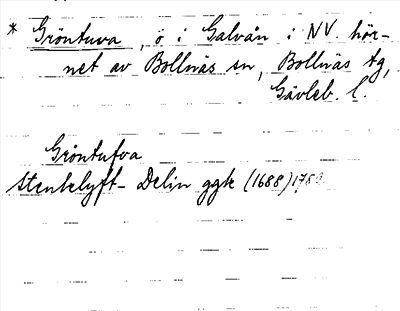 * Gröntuva, ö i Galvån i NV. hör-
net av Bollnäs sn, Bollnäs tg,
Gävleb. l.
Gröntufva
Stenkelyft- Delin ggk (1688) 1782